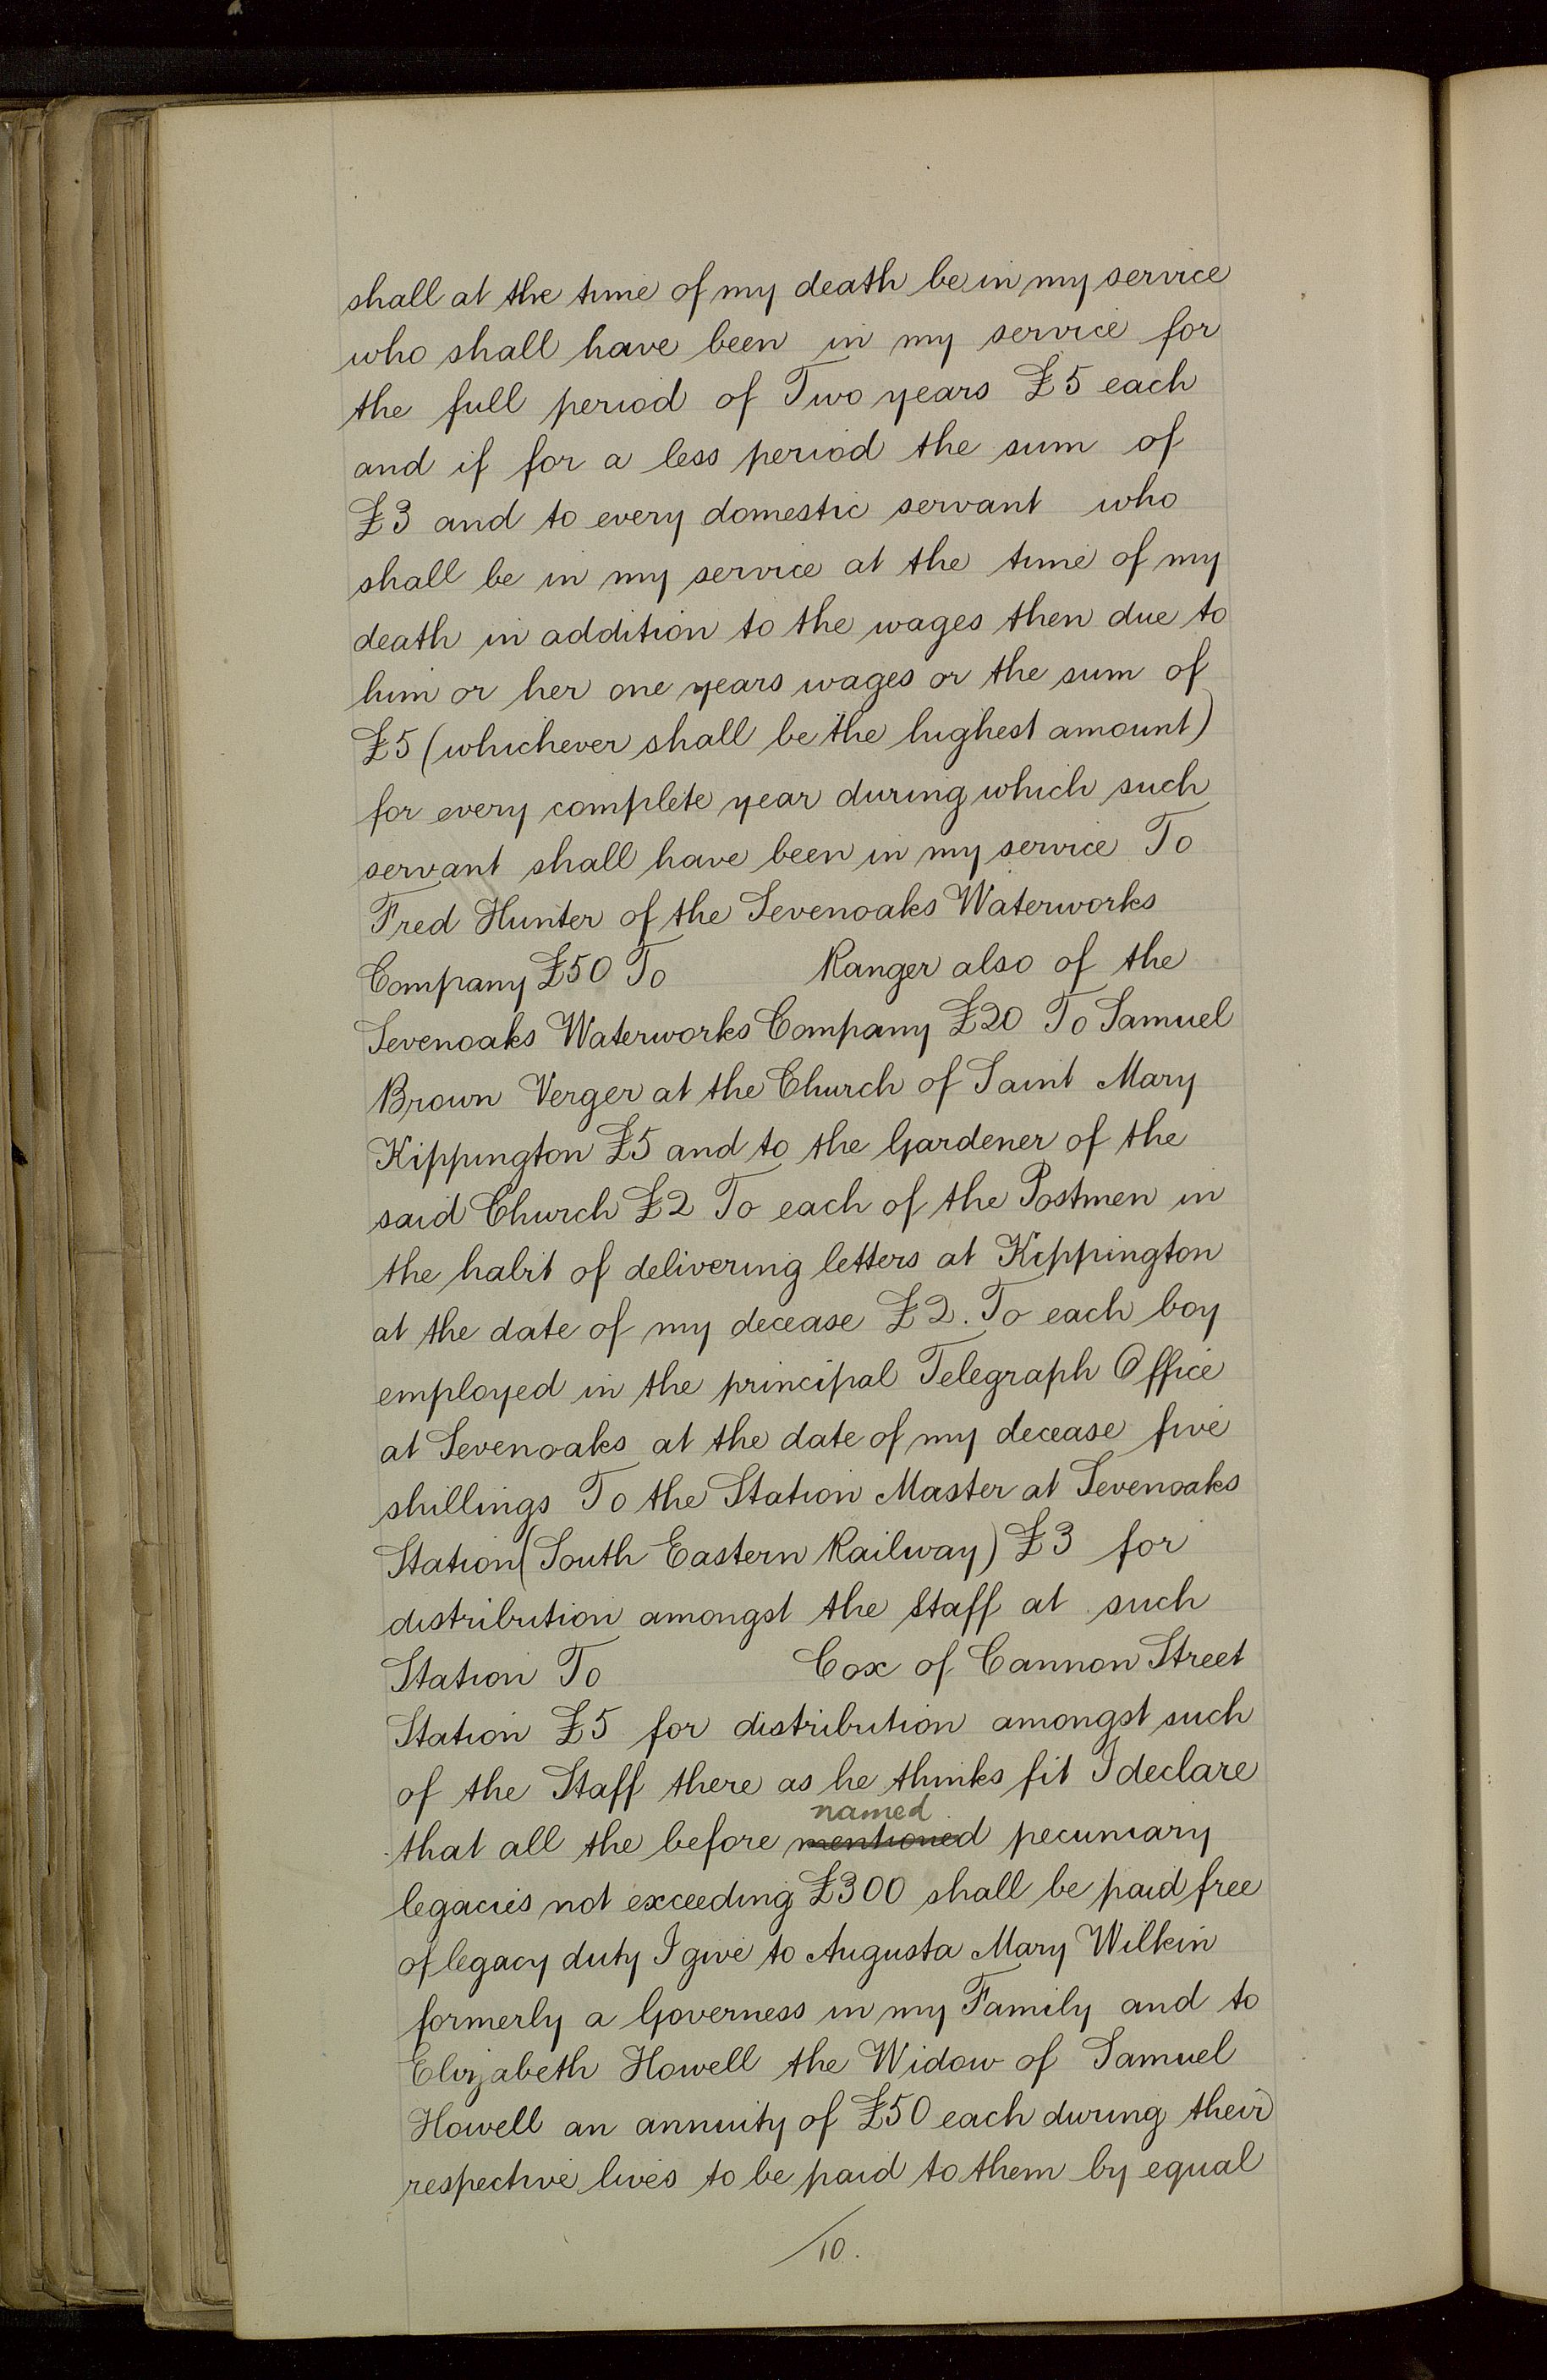 shall at the time of my death be in my service
who shall have been in my service for
the full period of Two years £5 each
and if for a less period the sum of
£3 and to every domestic servant who
shall be in my service at the time of my
death in addition to the wages then due to
him or her one years wages or the sum of
£5 (whichever shall be the highest amount)
for every complete year during which such
servant shall have been in my service To
Fred Hunter of the Sevenoaks Waterworks
Company £50 To Ranger also of the
Sevenoaks Waterworks Company £20 To Samuel
Brown Verger at the Church of Saint Mary
Kippington £5 and to the Gardener of the
said Church £2 To each of the Postmen in
the habit of delivering letters at Kippington
at the date of my decease £2. To each boy
employed in the principal Telegraph Office
at Sevenoaks at the date of my decease five
shillings To the Station Master at Sevenoaks
Station (South Eastern Railway) £3 for
distribution amongst the Staff at such
Station To Cox of Cannon Street
Station £5 for distribution amongst such
of the Staff there as he thinks fit I declare
named
that all the before mentioned pecuniary
legacies not exceeding £300 shall be paid free
of legacy duty I give to Augusta Mary Wilkin
formerly a Governess in my Family and to
Elizabeth Howell the Widow of Samuel
Howell an annuity of £50 each during their
respective lives to be paid to them by equal
/10.